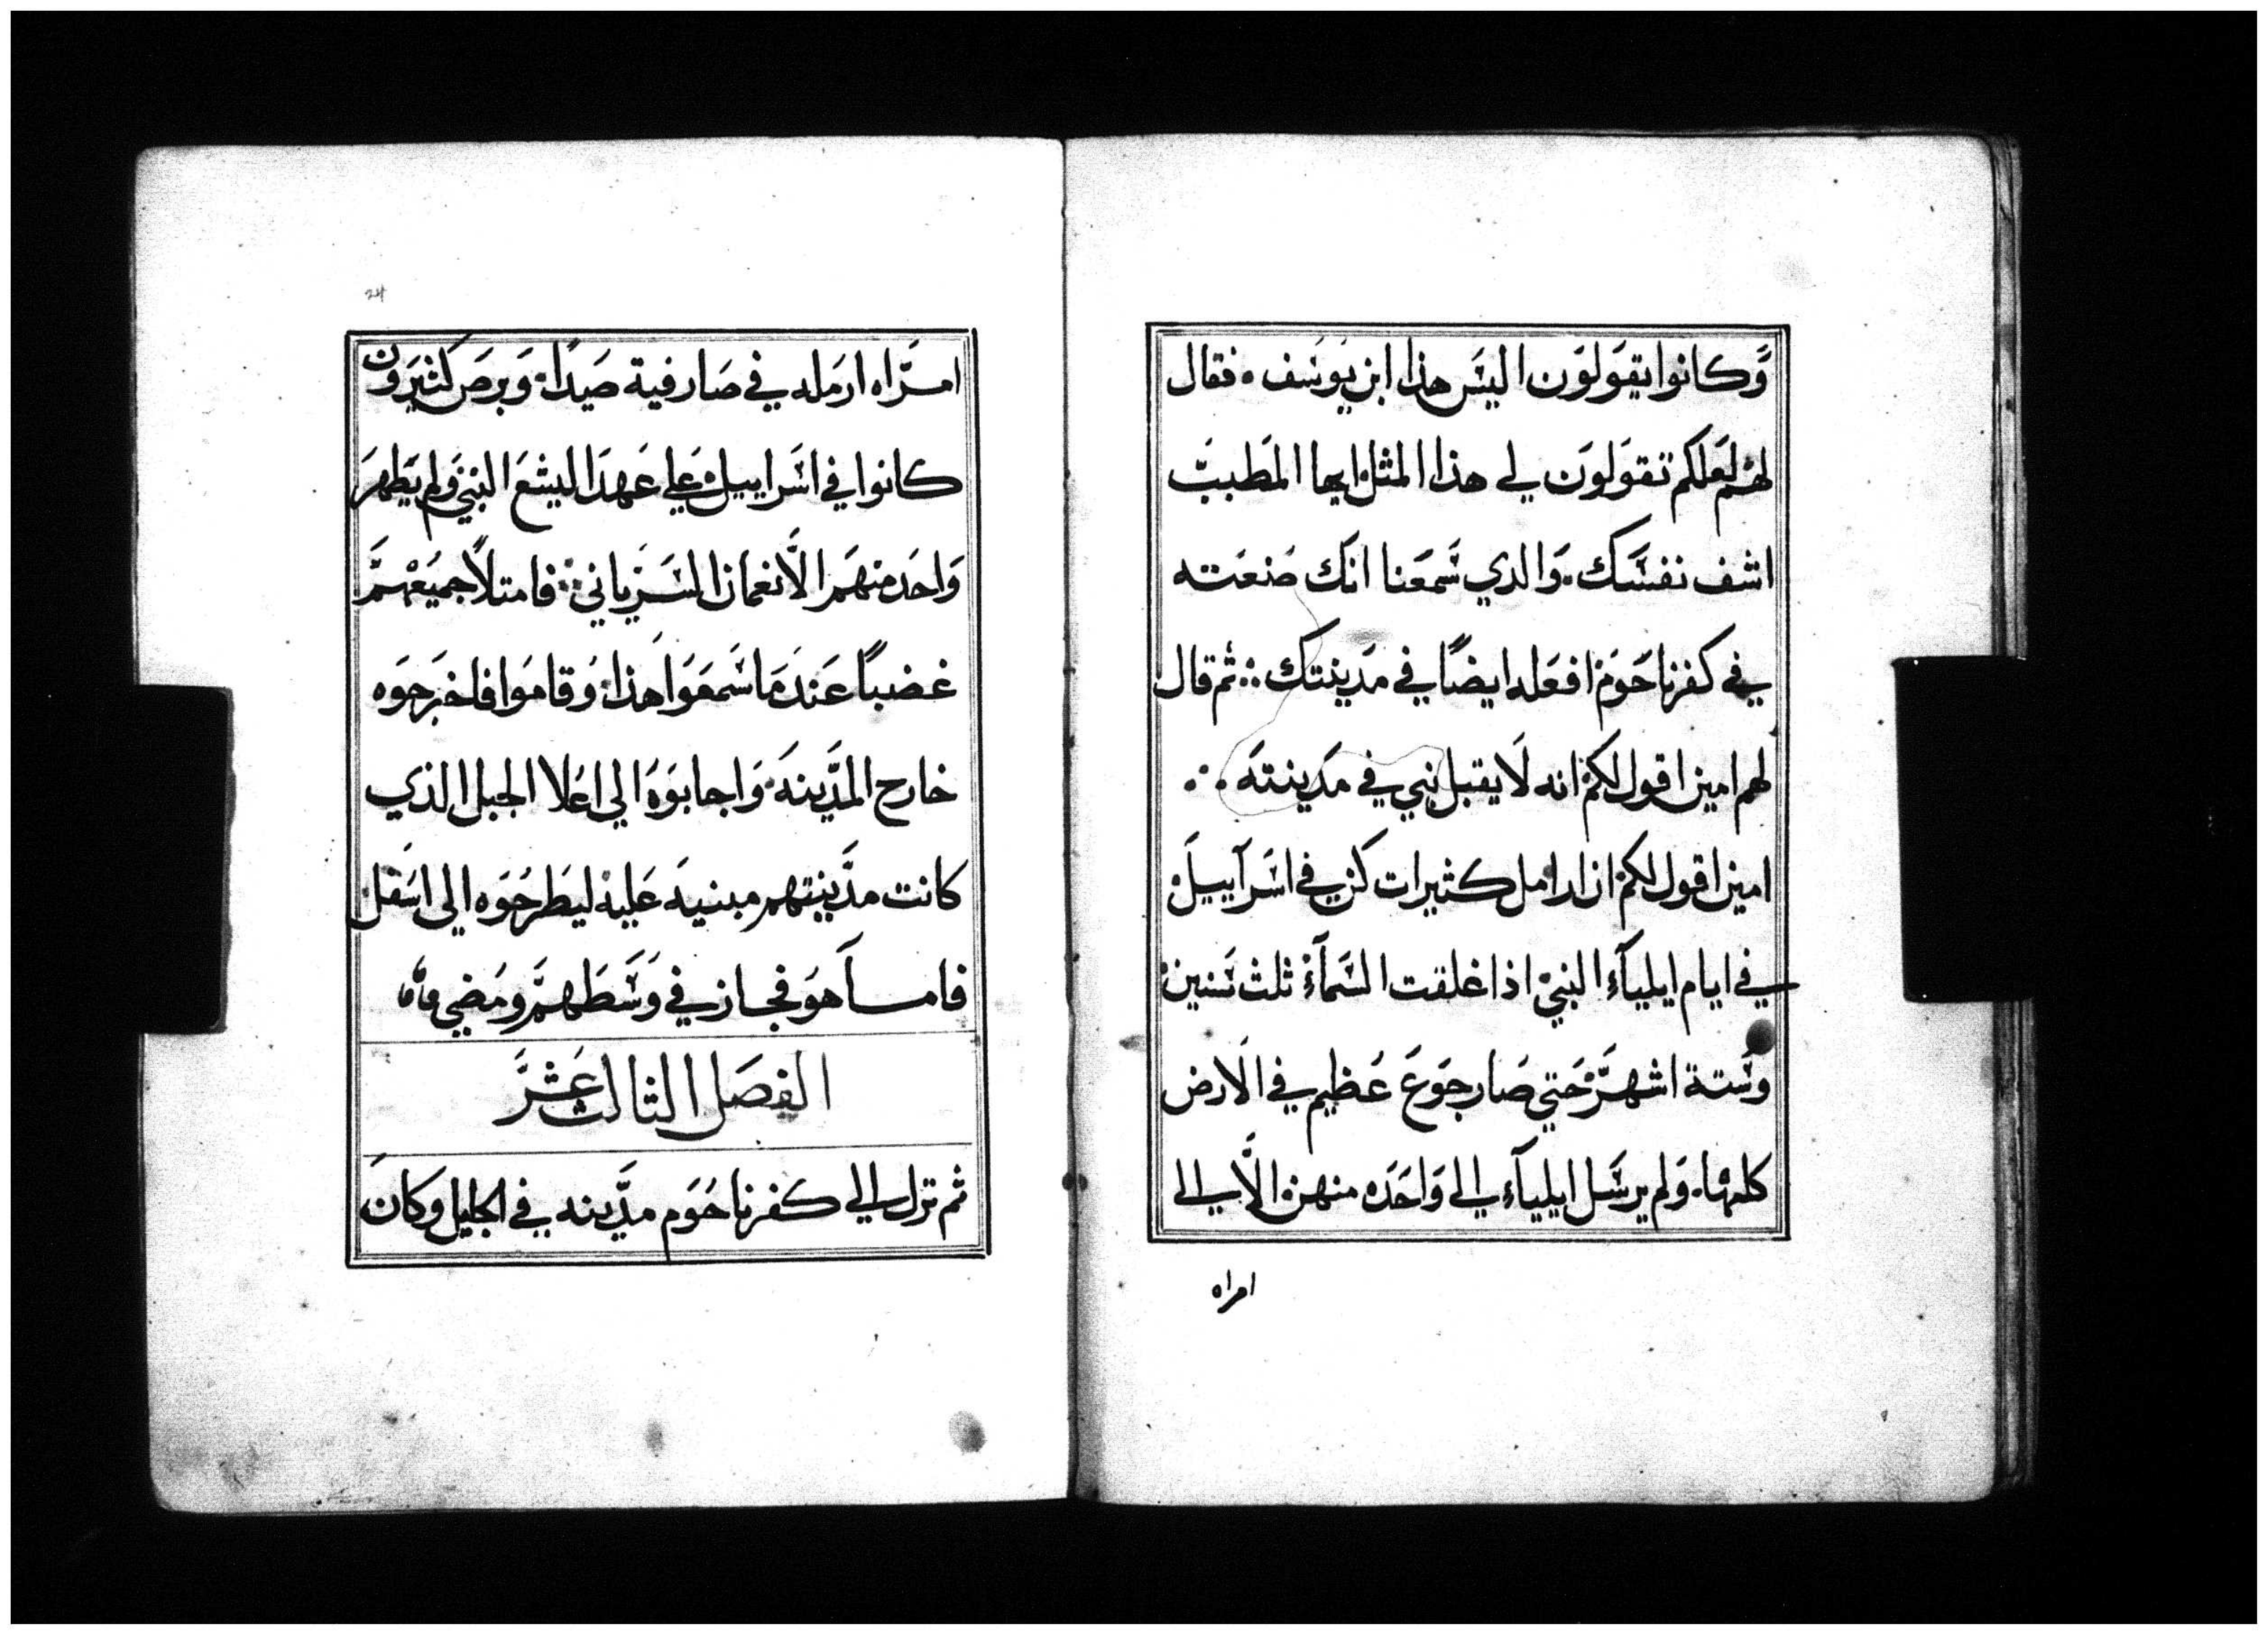 وَكانوا يقوَلوَن اليسَ هذا ابن يوسَف. فقال
لهْم لعَلكم تقوَلوَن لي هذا المثلْ ايها المَطببّ
اشف نفسَك. وَالدي سَمعَنا انكَ صَنعَته
في كفرناحَومْ افعَله ايضًا في مَدينتك :: ثم قال
لهم امين اقول لكمْ انه لَا يقبل نبي في مَدينتهَ ..
امين اقول لكمْ ان ارامل كثيرات كن في اسَرآييلَ
في ايام ايليآء النبيْ اذا غلقت السَمآءْ ثلث سَنينْ
وسَتة اشهرَّ حَتي صَار جوَعَ عَظيم في الَارض
كلها. وَلم يرسَل ايليآء الي وَاحَده منهنْ الَّا الي
امراه
24
امرَّاه ارمَله في صَارفية صَيدًا. وَبرصَ كثيرَون
كانوا في اسَراييلْ عَلي عَهدَ اليشعَ النبيْ وَلم يَطهرَ
وَاحَد منهَم الَّا نعمان السَرَياني :: فامتلاً جميعَهمَّ
غضباً عَندَ مَا سَمعَوَا هَذا. وَقامَوا فاخرَجوَه
خارج المدَّينهَ. وَاجابوَهَ الي اعَلا الجبل الذي
كانت مدَّينتهم مبنيهَ عَليهْ ليَطرحَوَه الي اسَفل
فامــا هَو فجــاز في وَسَطَهمَّ ومَضي
الفصَل الثالث عَشرَّ
ثم نزل الي كفرناحَوَم مدَّينه في الجليل وَكانَ